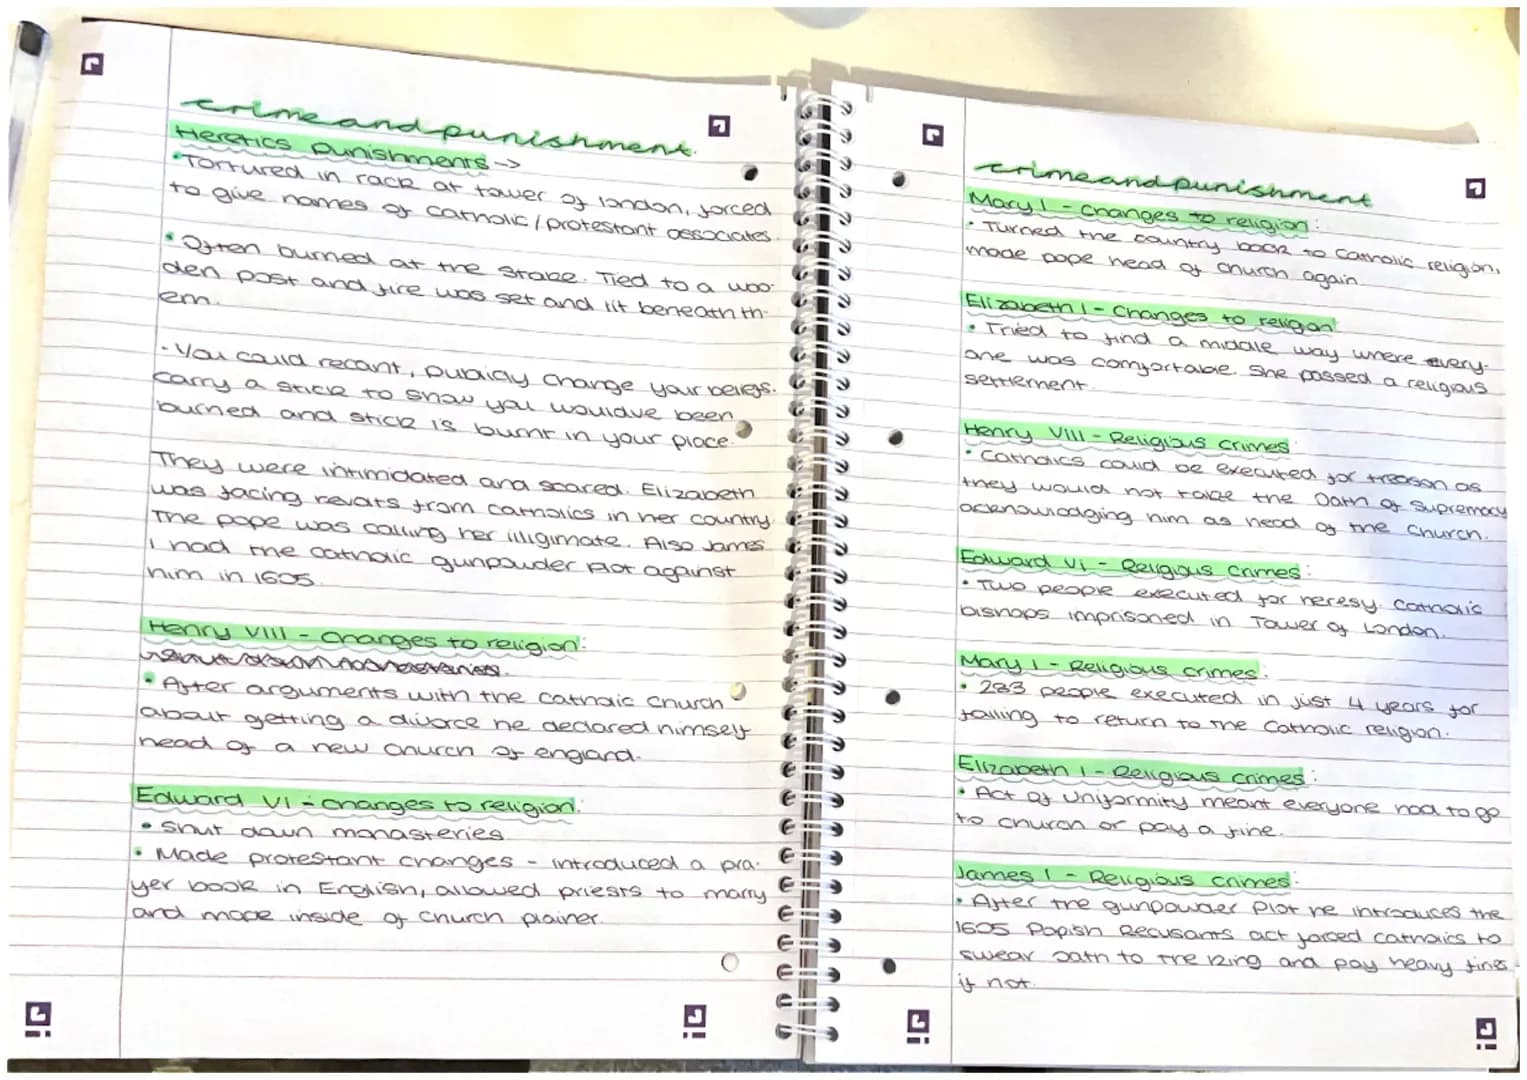 crime and punishment.
Heretics punishments ->
• Tortured in rack at tower of london, forced
to give names of catholic / protestant associates.
• Often burned at the stake. Tied to a woo-
den post and fire was set and lit beneath th-
em.
- You could recant, publicly change your beliefs.
Carry a stick to show you wouldve been
burned and stick is burnt in your place.
They were intimidated and scared. Elizabeth
was facing revolts from catholics in her country.
The pope was calling her illigimate. Also James
I had the catholic gunpowder plot against
him in 1605.
Henry VIII - changes to religion:
• After arguments with the catholic church
about getting a divorce he declared himself
head of a new church of england.
Edward VI - changes to religion:
• Shut down monasteries
• Made protestant changes - introduced a pra-
yer book in English, allowed priests to marry
and mape inside of church plainer.
crime and punishment
Mary I - changes to religion:
• Turned the country back to Catholic religion,
made pope head of church again.
Elizabeth I - Changes to religon
• Tried to find a middle way where every-
one was comfortable. She passed a religious
settlement.
Henry VIII - Religious Crimes
• Catholics could be executed for treason as
they would not take the Oath of Supremacy
acknowladging him as head of the church.
Edward VI - Religious Crimes:
• Two people executed for heresy. Catholic
bishops imprisoned in Tower of London.
Mary I - Religious crimes:
• 283 people executed in just 4 years for
failing to return to the Catholic religion.
Elizabeth I - Religious crimes:
• Act of Uniformity meant everyone had to go
to church or pay a fine.
James I - Religious crimes:
• After the gunpowder Plot he introduces the
1605 Popish Recusants act forced catholics to
swear oath to the king and pay heavy fines
if not.